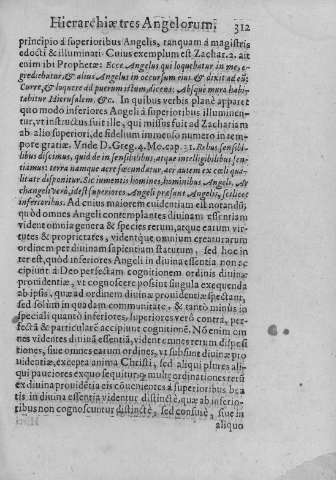 Hierarchiæ tres Angelorum. 312
principio à superioribus Angelis, tanquam à magistris
edocti & illuminati. Cuius exemplum est Zachar. 2. ait
enim ibi Propheta: Ecce Angelus qui loquebatur in me, e-
grediebatur, & alius Angelus in occursum eius & dixit ad eũ:
Curre, & loquere ad puerum istum, dicens: Absq; muro habi-
tabitur Hierusalem, &c. In quibus verbis planè apparet
quo modo inferiores Angeli à superioribus illuminen-
tur, vt instructus fuit ille, qui missus fuit ad Zachariam
ab alio superiori, de fidelium immenso numero in tem-
pore gratiæ. Vnde D. Greg. 4. Mo. cap. 31. Rebus sensibi-
libus discimus, quid de in sensibilibus, atque intelligibilibus sen-
tiamus: terra namque aere fœcundatur, aer autem ex cœli qua-
litate disponitur. Sic iumentis homines, hominibus Angeli, Ar
changeli verò, idest superiores Angeli præsunt Angelis, scilicet
inferioribus. Ad cuius maiorem euidentiam est notandũ,
quòd omnes Angeli contemplantes diuinam essentiam
vident omnia genera & species rerum, atque earum vir-
tutes & proprietates, vident́que omnium creaturarum
ordinem per diuinam sapientiam statutum, sed hoc in
ter est, quòd inferiores Angeli in diuina essentia non ac
cipiunt à Deo perfectam cognitionem ordinis diuinæ
prouidentiæ, vt cognoscere possint singula exequenda
ab ipsis, quæ ad ordinem diuinæ prouidentiæ spectant,
sed solùm in quadam communitate, & tanto minus in
speciali quantò inferiores, superiores verò contrà, per-
fectã & particularẽ accipiunt cognitionẽ. Nõ enim om
nes videntes diuinã essentiã, vident omnes rerum disposi
tiones, siue omnes earum ordines, vt subsunt diuinæ pro
uidentiæ, excepta anima Christi, sed aliqui plures ali-
qui pauciores exquo sequitur, q̃ multæ ordinationes rerũ
ex diuina prouidẽtia eis cõuenientes à superioribus bea
tis in diuina essentia videntur distinctè, quæ ab inferio-
ribus non cognoscuntur distinctè, sed confusè, siue in
aliquo